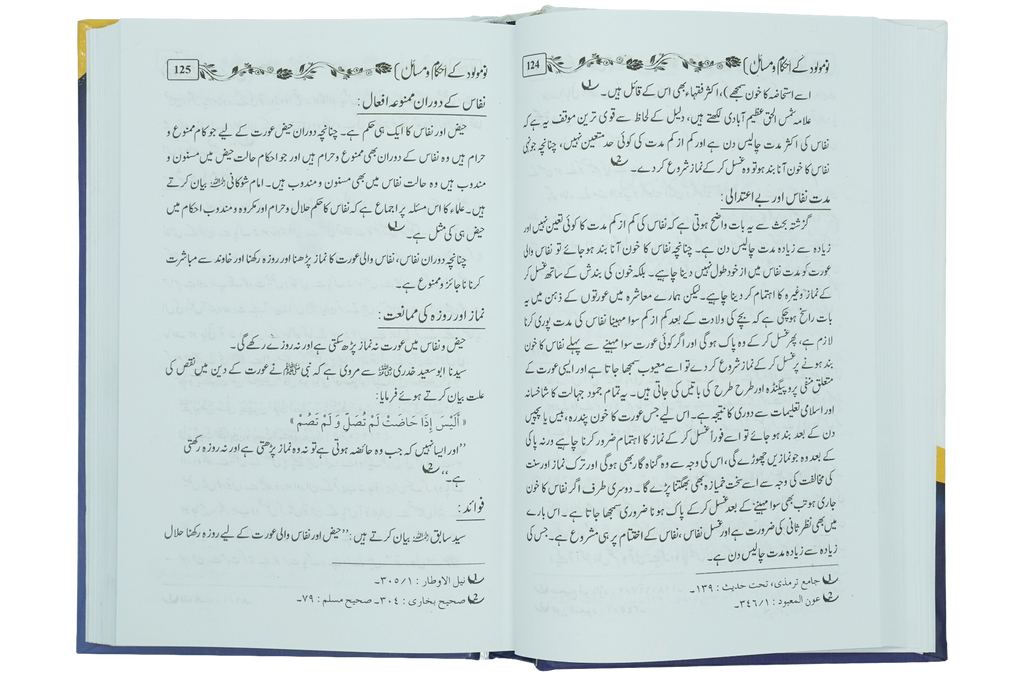 نومولود کے احکام و مسائل
124
اسے استحاضہ کا خون سمجھے)، اکثر فقہاء بھی اس کے قائل ہیں۔ 1
علامہ شمس الحق عظیم آبادی لکھتے ہیں، دلیل کے لحاظ سے قوی ترین موقف یہ ہے کہ
نفاس کی اکثر مدت چالیس دن ہے اور کم از کم مدت کی کوئی حد متعین نہیں، چنانچہ جونہی
نفاس کا خون آنا بند ہو تو وہ غسل کر کے نماز شروع کر دے۔ 2
مدت نفاس اور بے اعتدالی:
گزشتہ بحث سے یہ بات واضح ہوتی ہے کہ نفاس کی کم از کم مدت کا کوئی تعین نہیں اور
زیادہ سے زیادہ مدت چالیس دن ہے۔ چنانچہ نفاس کا خون آنا بند ہو جائے تو نفاس والی
عورت کو مدت نفاس میں از خود طول نہیں دینا چاہیے۔ بلکہ خون کی بندش کے ساتھ غسل کر
کے نماز وغیرہ کا اہتمام کر دینا چاہیے۔ لیکن ہمارے معاشرہ میں عورتوں کے ذہن میں یہ
بات راسخ ہو چکی ہے کہ بچے کی ولادت کے بعد کم از کم سوا مہینا نفاس کی مدت پوری کرنا
لازم ہے، پھر غسل کر کے وہ پاک ہو گی اور اگر کوئی عورت سوا مہینے سے پہلے نفاس کا خون
بند ہونے پر غسل کر کے نماز شروع کر دے تو اسے معیوب سمجھا جاتا ہے اور ایسی عورت کے
متعلق منفی پروپیگنڈہ اور طرح طرح کی باتیں کی جاتی ہیں۔ یہ تمام جمود جہالت کا شاخسانہ
اور اسلامی تعلیمات سے دوری کا نتیجہ ہے۔ اس لیے جس عورت کا خون پندرہ، بیس یا پچیس
دن کے بعد بند ہو جائے تو اسے فوراً غسل کر کے نماز کا اہتمام ضرور کرنا چاہیے ورنہ پاکی
کے بعد وہ جو نمازیں چھوڑے گی، اس کی وجہ سے وہ گناہ گار بھی ہو گی اور ترک نماز اور سنت
کی مخالفت کی وجہ سے اسے سخت خمیازہ بھی بھگتنا پڑے گا۔ دوسری طرف اگر نفاس کا خون
جاری ہو تب بھی سوا مہینے کے بعد غسل کر کے پاک ہونا ضروری سمجھا جاتا ہے۔ اس بارے
میں بھی نظر ثانی کی ضرورت ہے اور غسل نفاس، نفاس کے اختتام پر ہی مشروع ہے۔ جس کی
زیادہ سے زیادہ مدت چالیس دن ہے۔
1 جامع ترمذی، تحت حدیث : ۱۳۹۔
2 عون المعبود : ۳۴۶/۱۔
نومولود کے احکام و مسائل
125
نفاس کے دوران ممنوعہ افعال:
حیض اور نفاس کا ایک ہی حکم ہے۔ چنانچہ دوران حیض عورت کے لیے جو کام ممنوع و
حرام ہیں وہ نفاس کے دوران بھی ممنوع و حرام ہیں اور جو احکام حالت حیض میں مسنون و
مندوب ہیں وہ حالت نفاس میں بھی مسنون و مندوب ہیں۔ امام شوکانی رحمہ اللہ بیان کرتے
ہیں۔ علماء کا اس مسئلہ پر اجماع ہے کہ نفاس کا حکم حلال و حرام اور مکروہ و مندوب احکام میں
حیض ہی کی مثل ہے۔ 1
چنانچہ دوران نفاس، نفاس والی عورت کا نماز پڑھنا اور روزہ رکھنا اور خاوند سے مباشرت
کرنا ناجائز و ممنوع ہے۔
نماز اور روزہ کی ممانعت:
حیض و نفاس میں عورت نہ نماز پڑھ سکتی ہے اور نہ روزے رکھے گی۔
سیدنا ابو سعید خدری رضی اللہ عنہ سے مروی ہے کہ نبی ﷺ نے عورت کے دین میں نقص کی
علت بیان کرتے ہوئے فرمایا:
« أَلَيْسَ إِذَا حَاضَتْ لَمْ تُصَلِّ وَ لَمْ تَصُمْ »
’’اور ایسا نہیں کہ جب وہ حائضہ ہوتی ہے تو نہ وہ نماز پڑھتی ہے اور نہ روزہ رکھتی
ہے۔‘‘ 2
فوائد:
سید سابق رحمہ اللہ بیان کرتے ہیں: ’’حیض اور نفاس والی عورت کے لیے روزہ رکھنا حلال
1 نیل الاوطار : ۳۰۵/۱۔
2 صحیح بخاری : ۳۰۴۔ صحیح مسلم : ۷۹۔